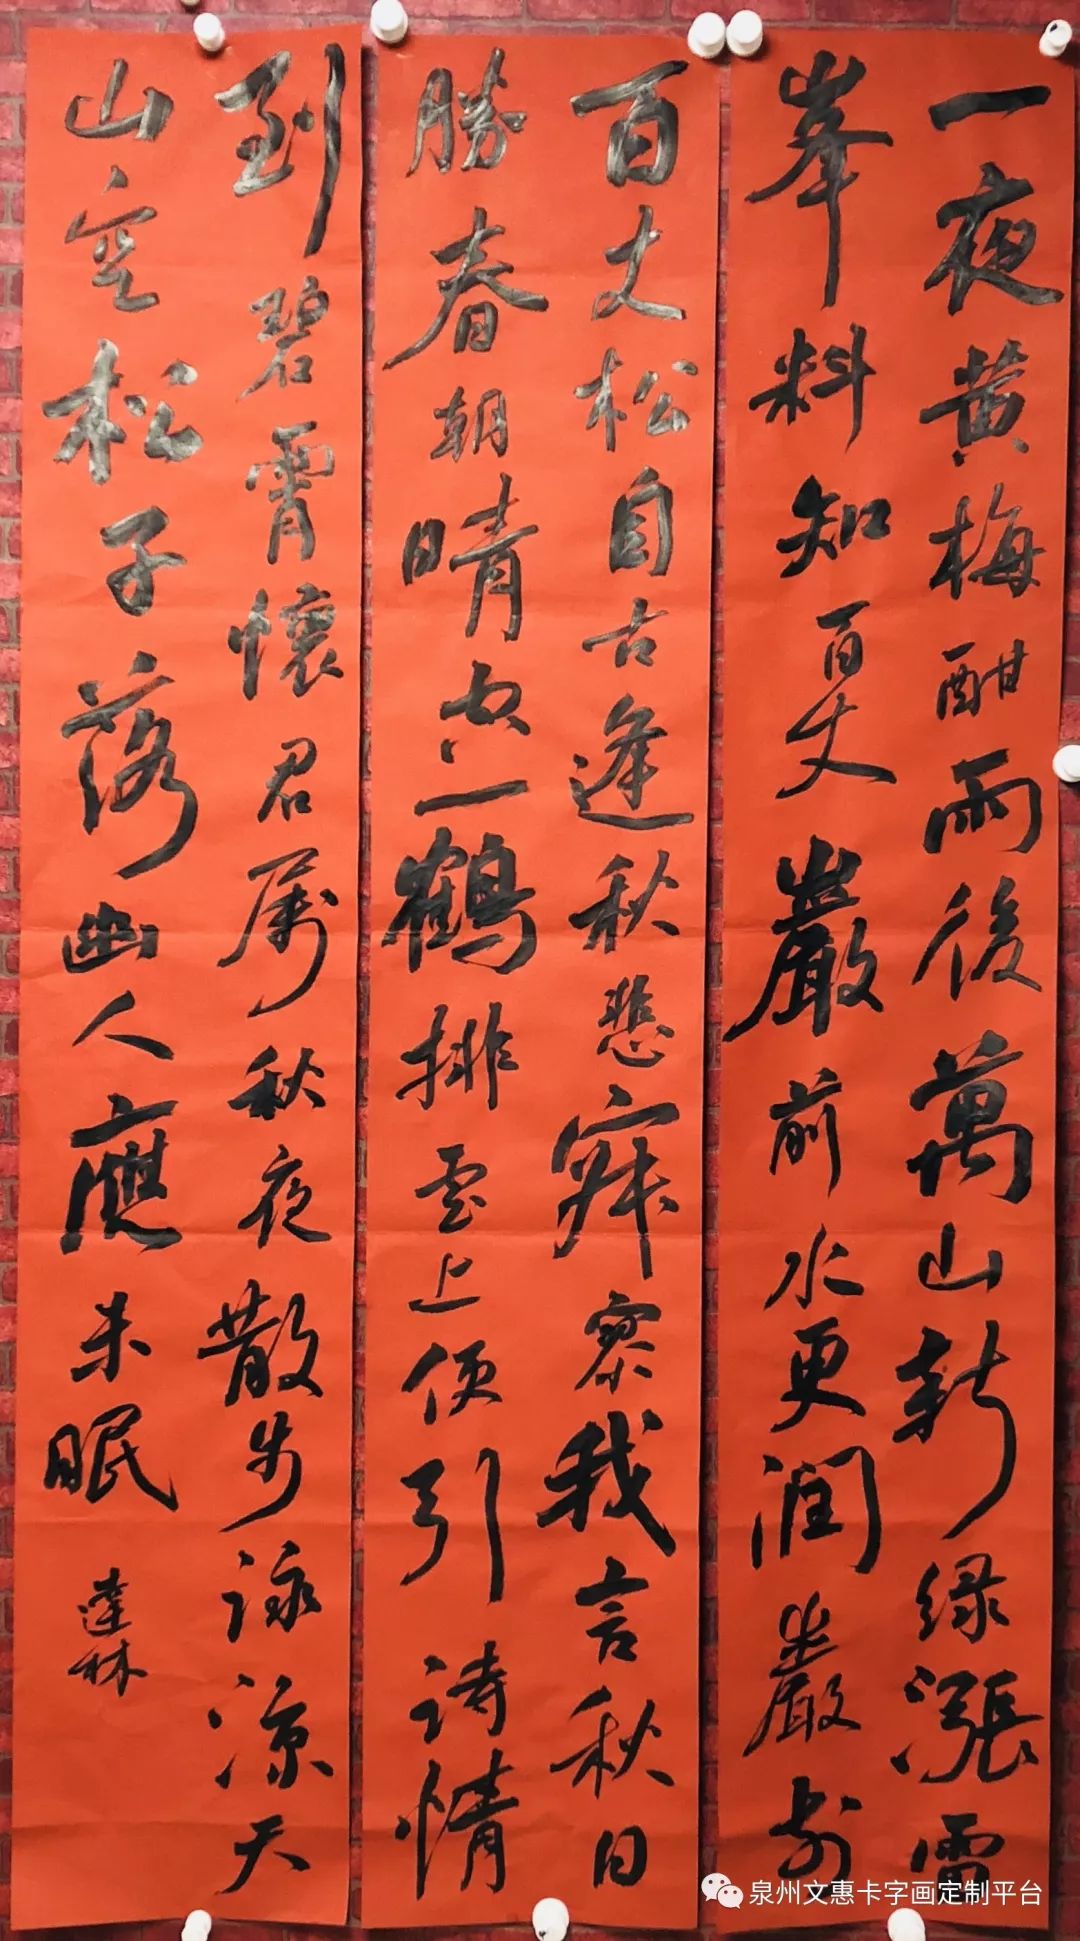 一夜黄梅酣雨後萬山新緑漲雷
峯料知百丈巖前水更潤巖前
百丈松自古逢秋悲寂寥我言秋日
勝春朝晴空一鶴排雲上便引詩情
到碧霄懷君属秋夜散步詠涼天
山空松子落幽人應未眠
達林
泉州文惠卡字画定制平台